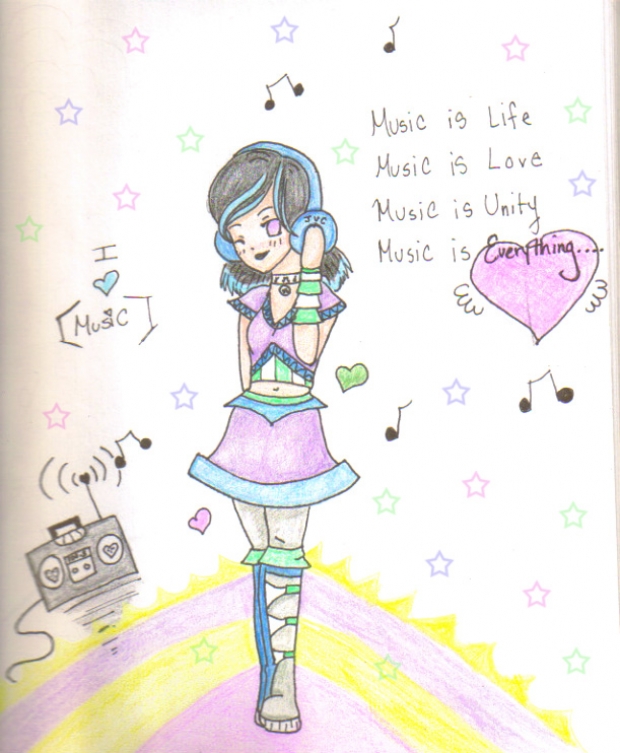 Music is Life
Music is Love
Music is Unity
Music is Everything....
JVC
I
[Music]